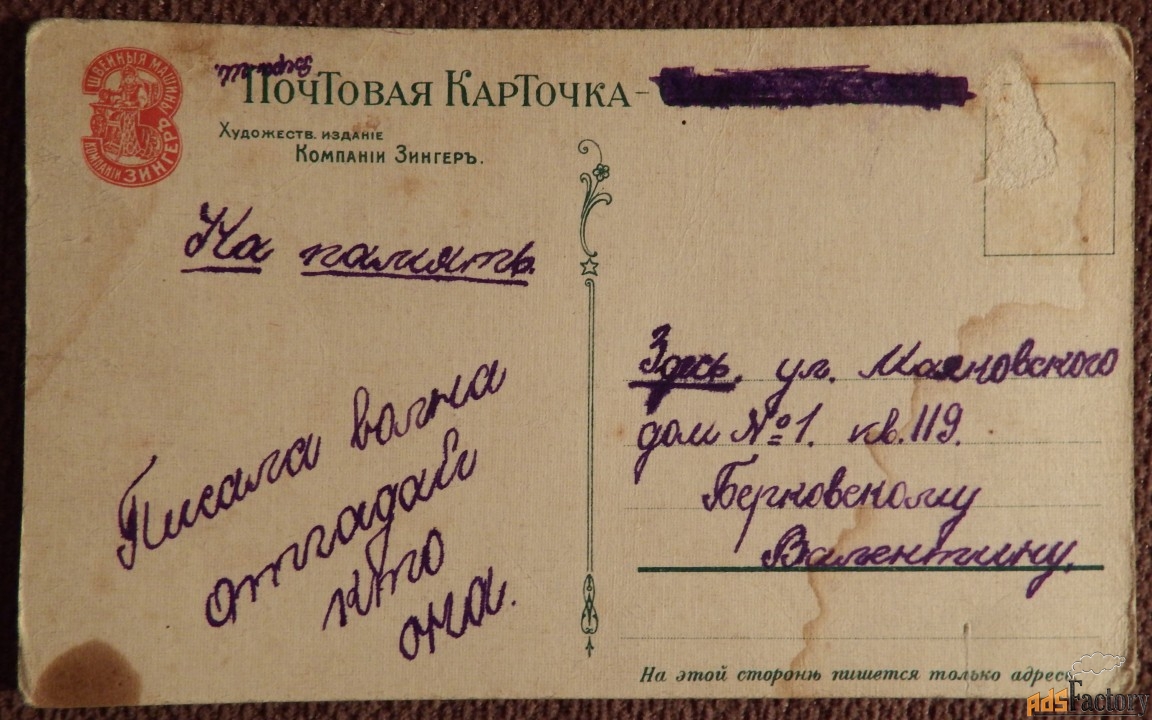 ШВЕЙНЫЯ МАШИНЫ
КОМПАНІИ ЗИНГЕРЪ
Вера Ш.
ПОЧТОВАЯ КАРТОЧКА-
ХУДОЖЕСТВ. ИЗДАНІЕ
КОМПАНІИ ЗИНГЕРЪ.
На память.
Писала волна
отгадай
кто
она.
Здесь. ул. Маяковского
дом №1. кв. 119.
Берковскому
Валентину.
На этой сторонѣ пишется только адресъ
AdsFactory